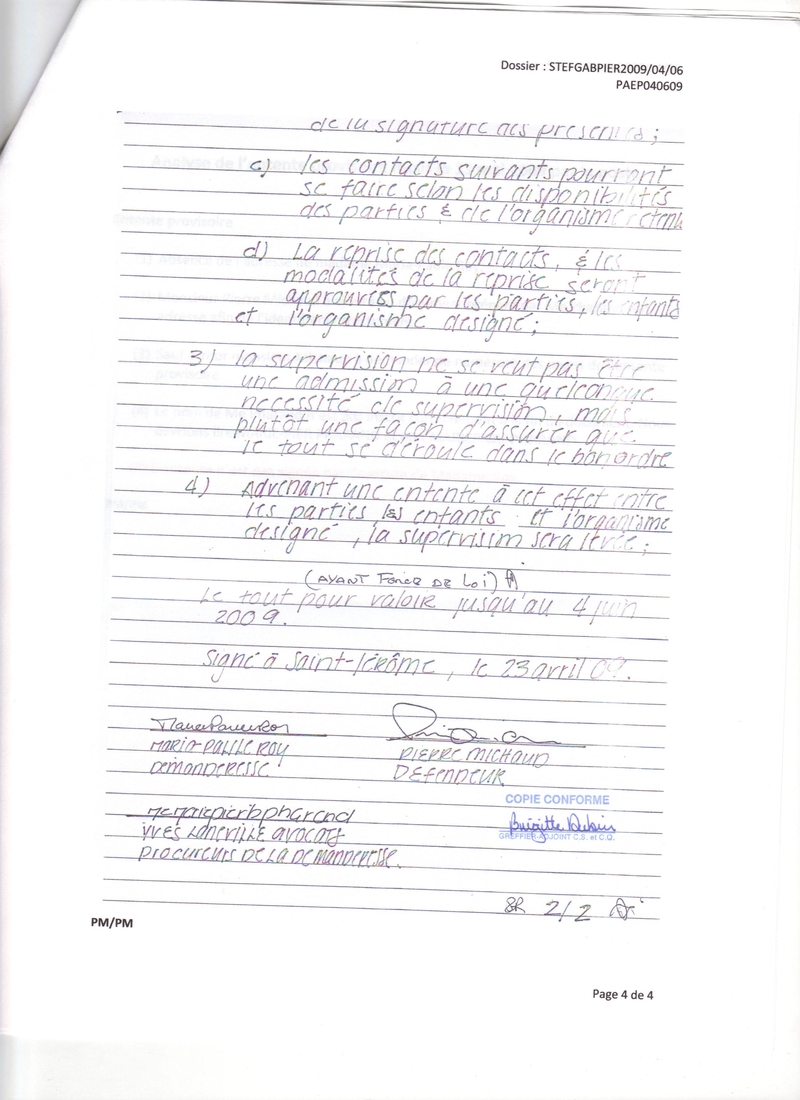 Dossier : STEFGABPIER2009/04/06
PAEP040609
de la signature des présentes;
c) les contacts suivants pourront
se faire selon les disponibilités
des parties & de l'organisme retenu
d) La reprise des contacts, & les
modalités de la reprise seront
approuvées par les parties, les enfants
et l'organisme designé;
3) la supervision ne se veut pas être
une admission à une quelconque
nécessité de supervision, mais
plutôt une façon d'assurer que
le tout se déroule dans le bon ordre
4) Advenant une entente à cet effet entre
les parties les enfants et l'organisme
designé, la supervision sera levée;
(AYANT FORCE DE LOI)
Le tout pour valoir jusqu'au 4 juin
2009.
Signé à Saint-Jérôme, le 23 avril 09.
MARIE-PAULE ROY
DEMANDERESSE
PIERRE MICHAUD
DÉFENDEUR
COPIE CONFORME
GREFFIER-ADJOINT C.S. et C.Q.
YVES AVOCATS
PROCUREURS DE LA DEMANDERESSE.
2/2
PM/PM
Page 4 de 4